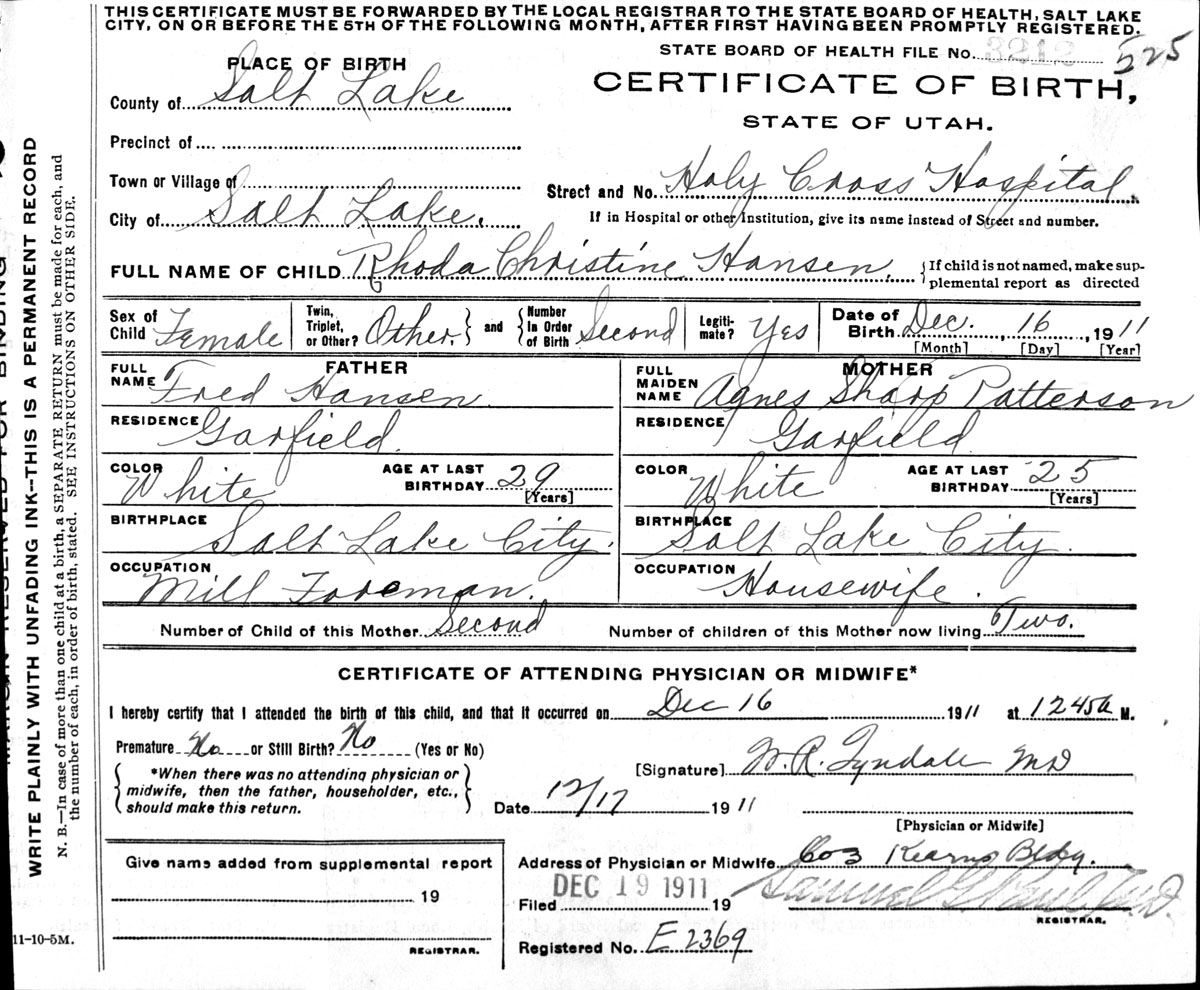 THIS CERTIFICATE MUST BE FORWARDED BY THE LOCAL REGISTRAR TO THE STATE BOARD OF HEALTH, SALT LAKE
CITY, ON OR BEFORE THE 5TH OF THE FOLLOWING MONTH, AFTER FIRST HAVING BEEN PROMPTLY REGISTERED.
STATE BOARD OF HEALTH FILE No. 3212 525
PLACE OF BIRTH
CERTIFICATE OF BIRTH,
County of Salt Lake
STATE OF UTAH.
Precinct of
Town or Village of
Street and No. Holy Cross Hospital.
City of Salt Lake.
If in Hospital or other Institution, give its name instead of Street and number.
FULL NAME OF CHILD Rhoda Christine Hansen. { If child is not named, make sup-
plemental report as directed
Sex of Child Female
Twin, Triplet, or Other? Other. } and { Number In Order of Birth Second
Legiti-mate? Yes
Date of Birth Dec. 16, 1911
[Month] [Day] [Year]
FATHER
FULL NAME Fred Hansen
RESIDENCE Garfield.
COLOR White AGE AT LAST BIRTHDAY 29 [Years]
BIRTHPLACE Salt Lake City.
OCCUPATION Mill Foreman.
MOTHER
FULL MAIDEN NAME Agnes Sharp Patterson
RESIDENCE Garfield
COLOR White AGE AT LAST BIRTHDAY 25 [Years]
BIRTHPLACE Salt Lake City.
OCCUPATION Housewife.
Number of Child of this Mother Second Number of children of this Mother now living Two.
CERTIFICATE OF ATTENDING PHYSICIAN OR MIDWIFE*
I hereby certify that I attended the birth of this child, and that it occurred on Dec 16 1911 at 1245a M.
Premature No or Still Birth? No (Yes or No)
[Signature] W. R. Tyndale MD
{ *When there was no attending physician or
midwife, then the father, householder, etc.,
should make this return. }
Date 12/17 1911
[Physician or Midwife]
Give name added from supplemental report
19
REGISTRAR.
Address of Physician or Midwife 603 Kearns Bldg.
DEC 19 1911
Filed 19
Samuel G. Paul M.D.
REGISTRAR.
Registered No. E 2369
11-10-5M.
WRITE PLAINLY WITH UNFADING INK--THIS IS A PERMANENT RECORD
N. B.—In case of more than one child at a birth, a SEPARATE RETURN must be made for each, and
the number of each, in order of birth, stated. SEE INSTRUCTIONS ON OTHER SIDE.
MARGIN RESERVED FOR BINDING